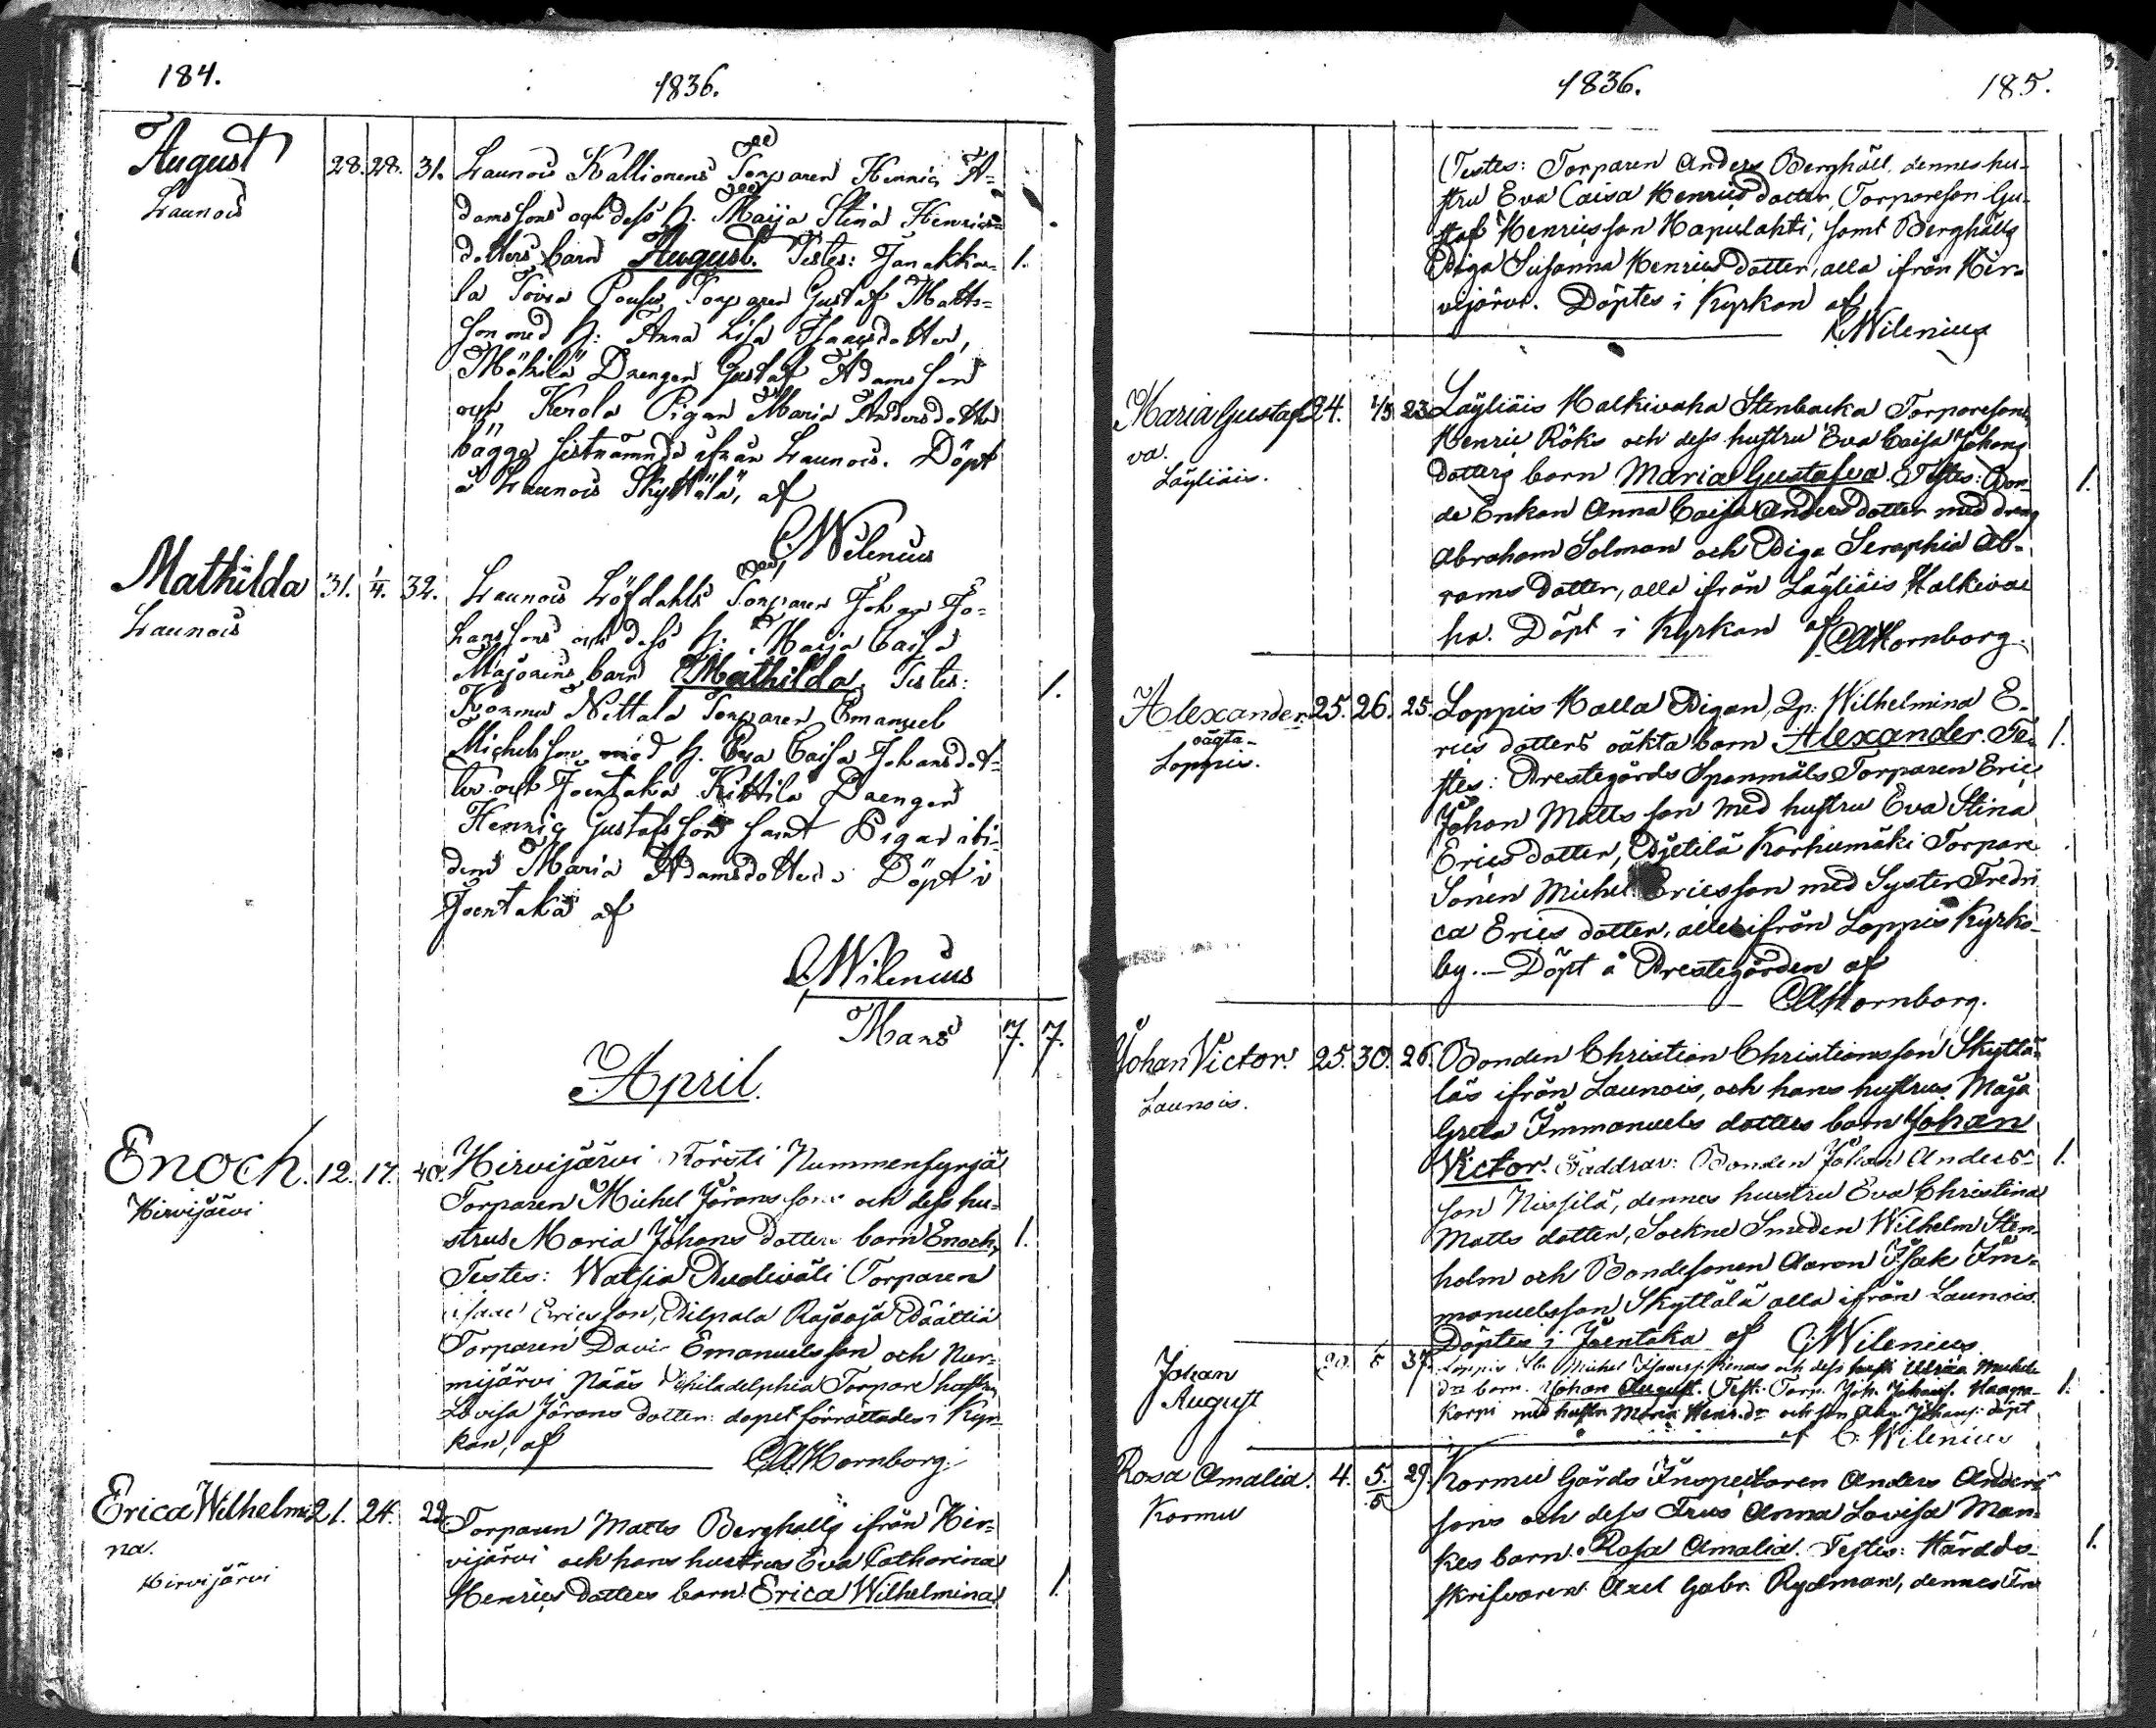 184.
1836.
August 28. 28. 31. Launois Kallionens Torparen Henric A-
Launois
damssons och dess h. Maija Stina Henrics-
dotters barn August. Testes: Janakka- 1.
la Torparen Gustaf Matts-
son med h: Anna Lisa Isaacsdotter,
Mäkilä Drengen Gustaf Adamsson
och Kerola Pigan Maria Andersdotter
bägge sistnämnde ifrån Launois. Döpt
å Launois Skyttälä, af
C Wilenius
Mathilda 31. 1/4. 32. Launois Löfdahls Torparen Johan Jo-
Launois
hanssons och dess h. Maija Caisa
Majorins barn Mathilda. Testes: 1.
Kormu Nittala Torparen Emanuel
Michelsson med h. Eva Caisa Johansdot-
ter och Joentaka Kittilä Drengen
Henric Gustafsson samt Pigan ibi-
dem Maria Adamsdotter. Döpt i
Joentaka af
C Wilenius
Mars 7. 7.
April.
Enoch. 12. 17. 40. Hirvijärvi Körsti Nummensyrjä
Hirvijärvi
Torparen Michel Jöranssons och dess hu-
strus Maria Johans dotters barn Enoch, 1.
Testes: Watsia Torparen
Isaac Ericsson, Pilpala Rajaoja
Torparen David Emanuelsson och Nur-
mijärvi Nääs Philadelphia Torpare hustru
Lovisa Jörans dotter: dopet förrättades i Kyr-
kan, af
C A Hornborg.
Erica Wilhelmi- 21. 24. 22. Torparen Matts Berghälls ifrån Hir-
na.
Hirvijärvi
vijärvi och hans hustrus Eva Catharina
Henrics dotters barn Erica Wilhelmina 1.
1836.
185.
(Testes: Torparen Anders Berghäll, dennes hu-
stru Eva Caisa Henrics dotter, Torpareson Gu-
staf Henricsson Hapulahti, samt Berghälls
Piga Susanna Henrics dotter, alla ifrån Hir-
vijärvi. Döptes i Kyrkan af
C Wilenius
Maria Gustaf- 24. 1/5 23. Läyliäis Halkivaha Stenbacka Torparesons
va.
Läyliäis.
Henric Röks och dess hustru Eva Caisa Johans
dotters barn Maria Gustafva. Testes: Bon- 1.
de Enkan Anna Caisa Anders dotter med dreng
Abraham Salman och Piga Seraphia Ab-
rams dotter, alla ifrån Läyliäis Halkiva
ha. Döpt i Kyrkan af C A Hornborg.
Alexander. 25. 26. 25. Loppis Kalla Pigan, Qp: Wilhelmina E-
oägta-
Loppis.
rics dotters oäkta barn Alexander. Te- 1.
stes: Prestegårds Spanmåls Torparen Eric
Johan Matts son med hustru Eva Stina
Erics dotter, Pjetilä Korhiemäki Torpare
Sonen Michel Ericsson med Syster Fredri
ca Erics dotter, alla ifrån Loppis Kyrko-
by. - Döpt å Prestegården af
C A Hornborg.
Johan Victor. 25. 30. 26. Bonden Christian Christiansson Skyttä-
Launois.
läs ifrån Launois, och hans hustrus Maja
Greta Immanuels dotters barn Johan
Victor. Faddrar: Bonden Johan Anders- 1.
son Nissilä, dennes hustru Eva Christina
Matts dotter, Sockne Smeden Wilhelm Sten-
holm och Bondesonen Aaron Isak Im-
manuelsson Skyttälä alla ifrån Launois.
Döptes i Joentaka af C: Wilenius
Johan 37. Loppis Michel och dess hustr Michels
August
dr barn. Johan August. Test. Torp. Joh. Johans. Haapa- 1.
korpi med hustr Maria Henr. dr och son Johans: döpt
af C: Wilenius
Rosa Amalia. 4. 5. 29. Kormu Gårds Inspectoren Anders Anders-
5
Kormu
sons och dess Frus Anna Lovisa Man-
kes barn. Rosa Amalia. Testes: Härads- 1.
skrifvaren Axel Gabr. Rydman, dennes Fru